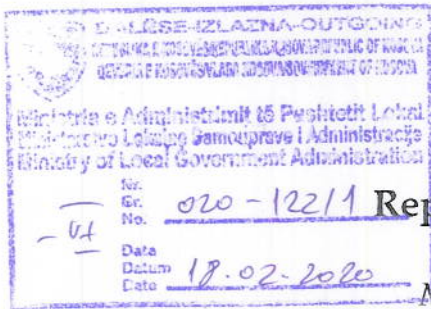 DALËSE-IZLAZNA-OUTGOING
REPUBLIC OF KOSOVA
Ministria e Administrimit të Pushtetit Lokal
Ministarstvo Lokalne Samouprave i Administracije
Ministry of Local Government Administration
Nr.
Br.
No. 020-122/1 Rep
Data
Datum
Date 18.02-2020